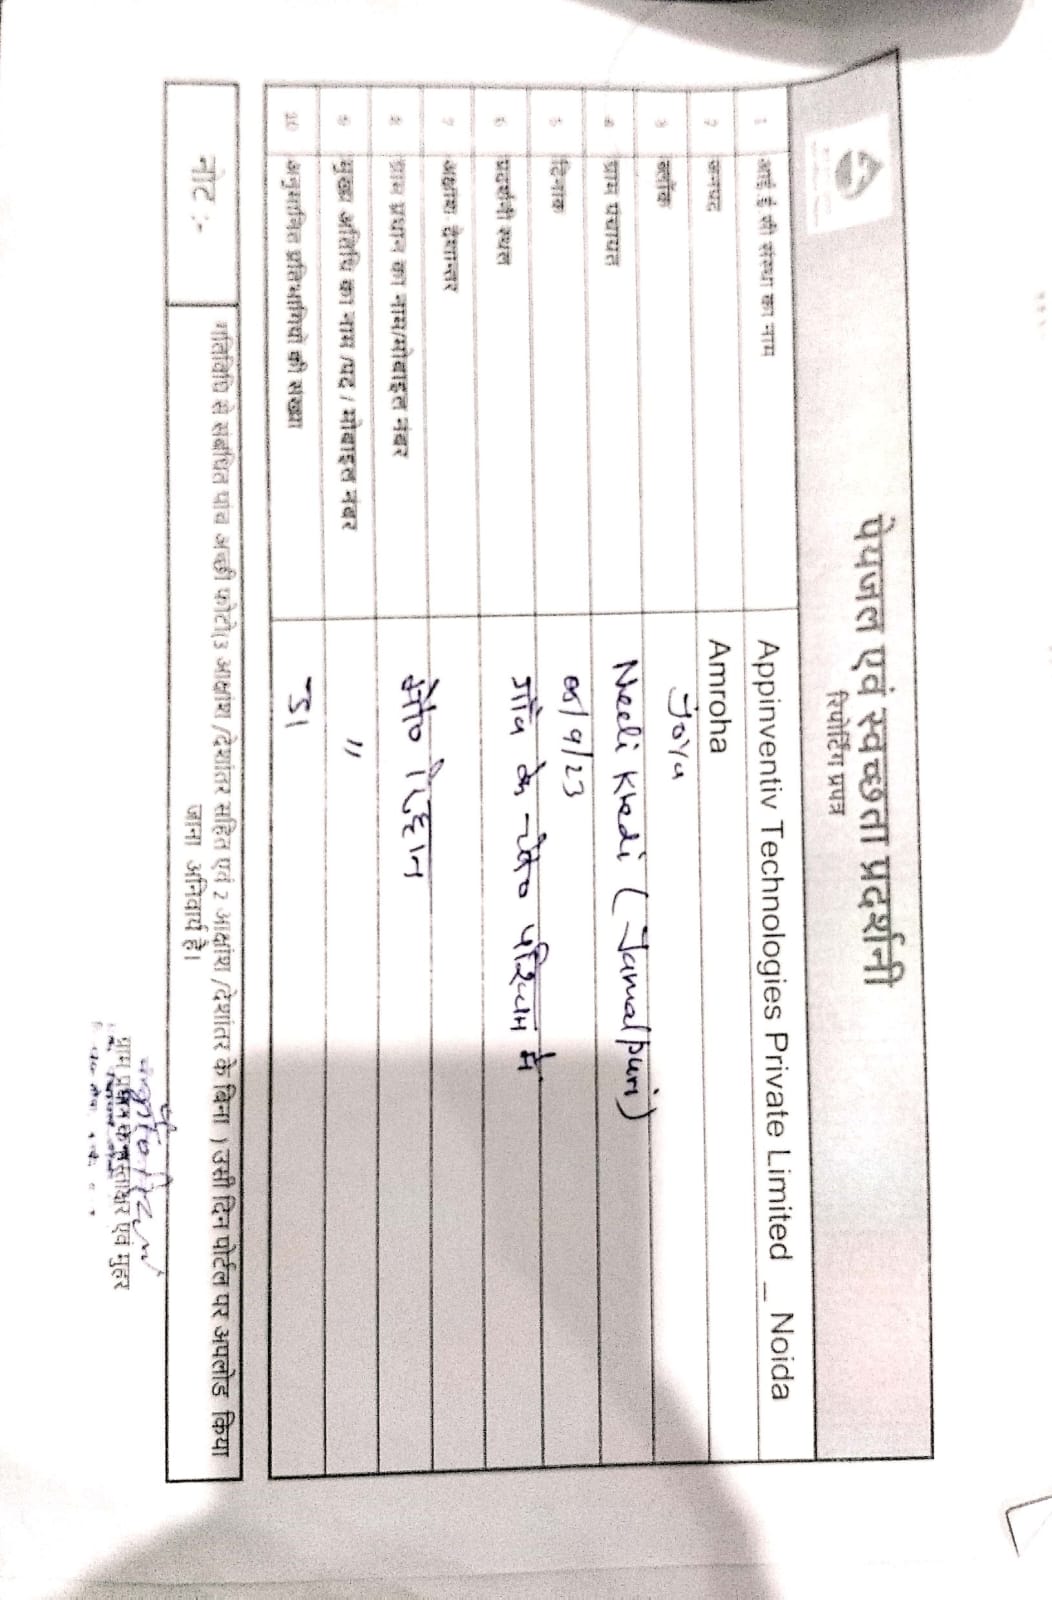 पेयजल एवं स्वच्छता प्रदर्शनी
रिपोर्टिंग प्रपत्र
1 आई.ई.सी संस्था का नाम Appinventiv Technologies Private Limited _ Noida
2 जनपद Amroha
3 ब्लॉक Joya
4 ग्राम पंचायत Neeli Khedi (Jamalpuri)
5 दिनांक 05/9/23
6 प्रदर्शनी स्थल गाँव के में
7 अक्षांश देशान्तर
8 ग्राम प्रधान का नाम/मोबाइल नंबर
9 मुख्य अतिथि का नाम /पद / मोबाइल नंबर "
10 अनुमानित प्रतिभागियों की संख्या
नोट :- गतिविधि से संबंधित पांच अच्छी फोटो(3 अक्षांश /देशांतर सहित एवं 2 अक्षांश /देशांतर के बिना ) उसी दिन पोर्टल पर अपलोड किया
जाना अनिवार्य है।
ग्राम प्रधान के हस्ताक्षर एवं मुहर